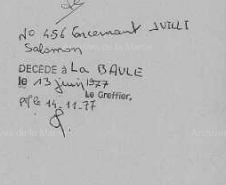 N° 456 Concernant JUILLI
Salomon
DECEDÉ à LA BAULE
le 13 juin 1977
Le Greffier,
14.11.77